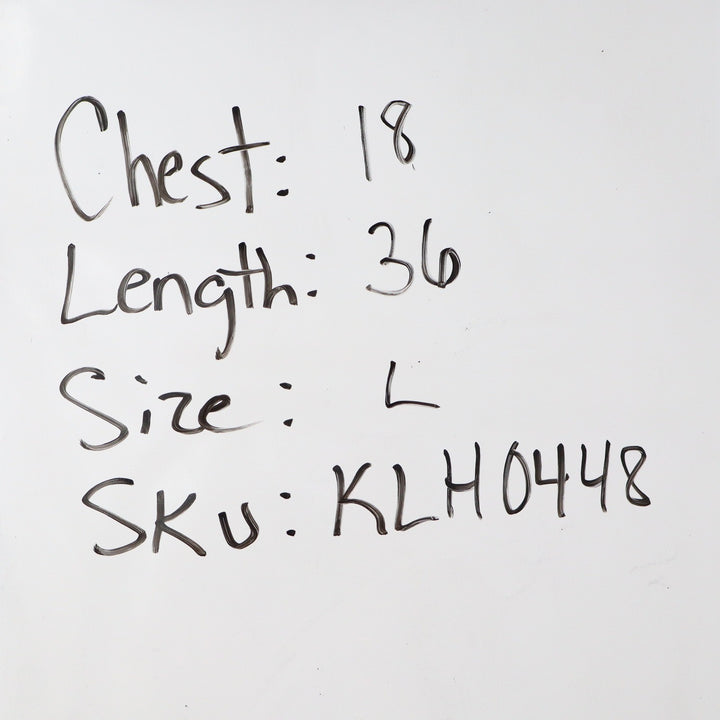 Chest: 18
Length: 36
Size: L
SKU: KLH0448